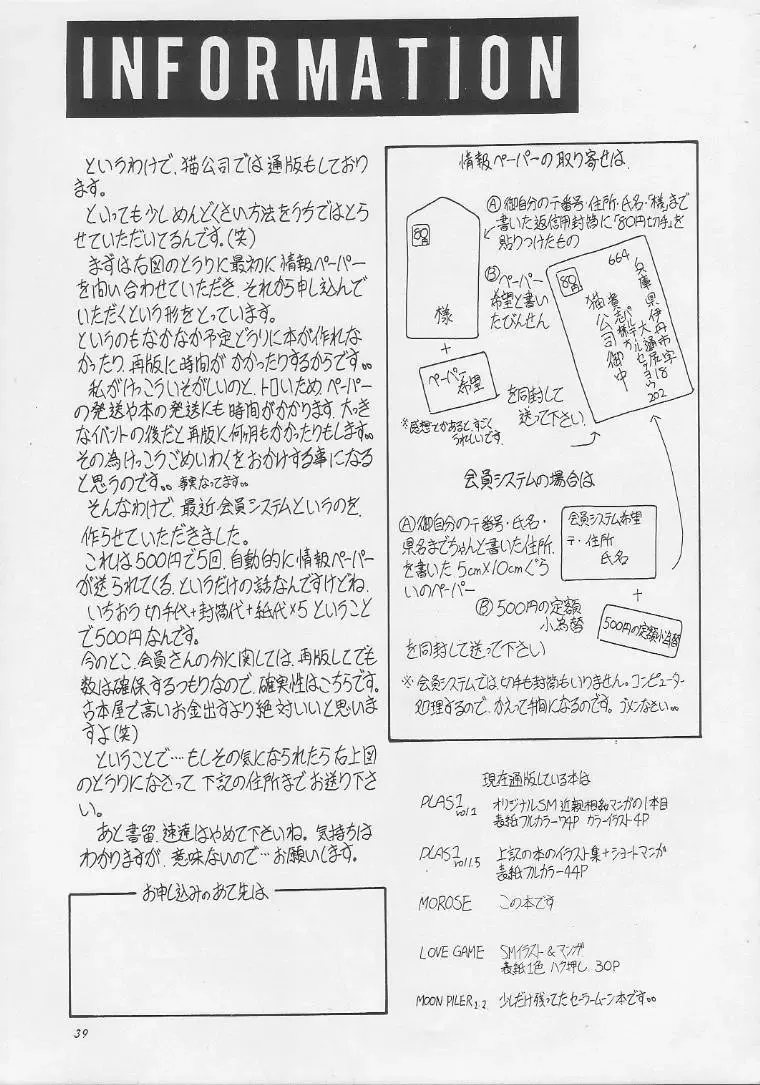 INFORMATION
というわけで、猫公司では通版もしており
ます。
といっても少しめんどくさい方法をうちではとら
せていただいてるんです。(笑)
まずは右図のとうりに最初に情報ペーパー
を問い合わせていただき、それから申し込んで
いただくという形をとっています。
というのもなかなか予定どうりに本が作れな
かったり、再版に時間がかかったりするからです。。
私がけっこういそがしいのと、トロいため、ペーパー
の発送や本の発送にも時間がかかります、大っき
なイベントの後だと再版に何ヶ月もかかったりもします。。
その為けっこうごめいわくをおかけする事になる
と思うのです。。事実なってます。。
そんなわけで、最近会員システムというのを、
作らせていただきました。
これは500円で5回、自動的に情報ペーパー
が送られてくる、というだけの話なんですけどね、
いちおう切手代+封筒代+紙代×5ということ
で500円なんです。
今のとこ、会員さんの分に関しては、再版してでも
数は確保するつもりなので、確実性はこちらです。
古本屋で高いお金出すより絶対いいと思いま
すよ(笑)
ということで…もしその気になられたら右上図
のとうりになさって下記の住所までお送り下さ
い。
あと書留、速達はやめて下さいね。気持ちは
わかりますが、意味ないので…お願いします。
お申し込みのあて先は
39
情報ペーパーの取り寄せは
Ⓐ御自分の〒番号・住所・氏名・「様」まで
書いた返信用封筒に「80円切手」を
貼りつけたもの
80
様
+
Ⓑペーパー
希望と書い
たびんせん
ペーパー
希望
を同封して
送って下さい
※感想とかあると、すごく
うれしいです。
80
664
兵庫県伊丹市
202
猫公司御中
会員システムの場合は
Ⓐ御自分の〒番号・氏名・
県名までちゃんと書いた住所
を書いた5cm×10cmぐら
いのペーパー
会員システム希望
〒・住所
氏名
+
Ⓑ500円の定額
小為替
500円の定額小為替
を同封して送って下さい
※会員システムでは、切手も封筒もいりません。コンピューター
処理するので、かえって手間になるのです。ゴメンなさい。。
現在通版している本は
PLAS1 vol.1 オリジナルSM近親相姦マンガの1本目
表紙フルカラー74P カラーイラスト4P
PLAS1 vol1.5 上記の本のイラスト集+ショートマンガ
表紙フルカラー44P
MOROSE この本です
LOVE GAME SMイラスト&マンガ
表紙1色 ハク押し 30P
MOON PILER 1.2 少しだけ残ってたセーラームーン本です。。